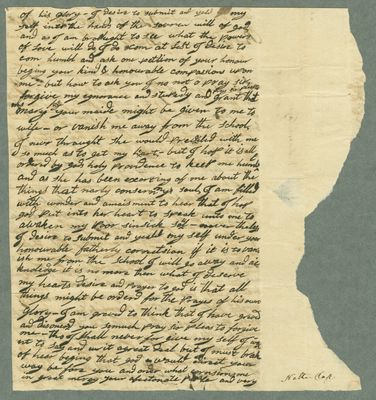 of his glory - I desire to submit and yeald my
self into the hands of the soveren will of god
and as I am brought to see what the power
of Love will do I do com at Last I desire to
com humble and ask one petition of your honour
beging your kind & honourable compasion upon
me - but how to ask you I no not o pray Sir
forgive my ignorance and stupedy and grant that
mary your maide might be given to me to
wife - or vanish me away from the school
I never thraught she would prevailed with me
so much as to get my heart - but I hope it is all
orderd by gods holy providence to keep me humble
and as she has been exercising of me about the
things that nearly conserns my soul, I am filled
with wonder and amaisment to hear that I hop
god put into her heart to speak unto me to
awaken my poor sinsick soul - never theless
I desire to submit and yealld my self under your
honourable fatherly compassion if it is to van
ish me from the school I will go away and ac
knoledge it is no more then what I deserve
my hearts desire and prayer to god is that all
things might be orderd for the Prayes of his own
Glory - I am greved to think that I have greved
and disoned you so much pray sir pleas to forgive
me - tho I shall never for give my self I
want to say and writ a great deal but I must break
of hear beging that god would direct your
way before you and order what concerns me
in great mercy your afectionate and very